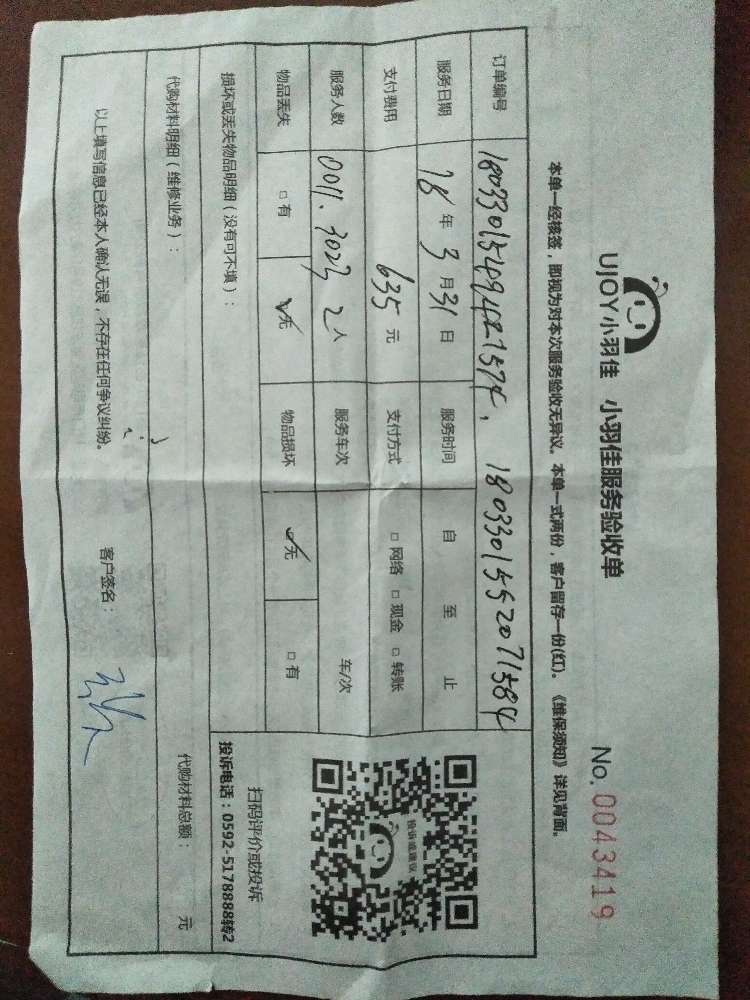 UJOY小羽佳 小羽佳服务验收单
No. 0043419
本单一经核签，即视为对本次服务验收无异议。本单一式两份，客户留存一份(红)。《维保须知》详见背面。
订单编号 1803301549421574, 1803301552071584
服务日期 18 年 3 月 31 日 服务时间 自 至 止
支付费用 635 元 支付方式 □ 网络 □ 现金 □ 转账
服务人数 0011. 3023 2 人 服务车次 车/次
物品丢失 □ 有 ✓无 物品损坏 ✓无 □ 有
投诉或建议
扫码评价或投诉
投诉电话：0592-5178888转2
损坏或丢失物品明细（没有可不填）：
代购材料明细（维修业务）： 代购材料总额： 元
以上填写信息已经本人确认无误，不存在任何争议纠纷。 客户签名：